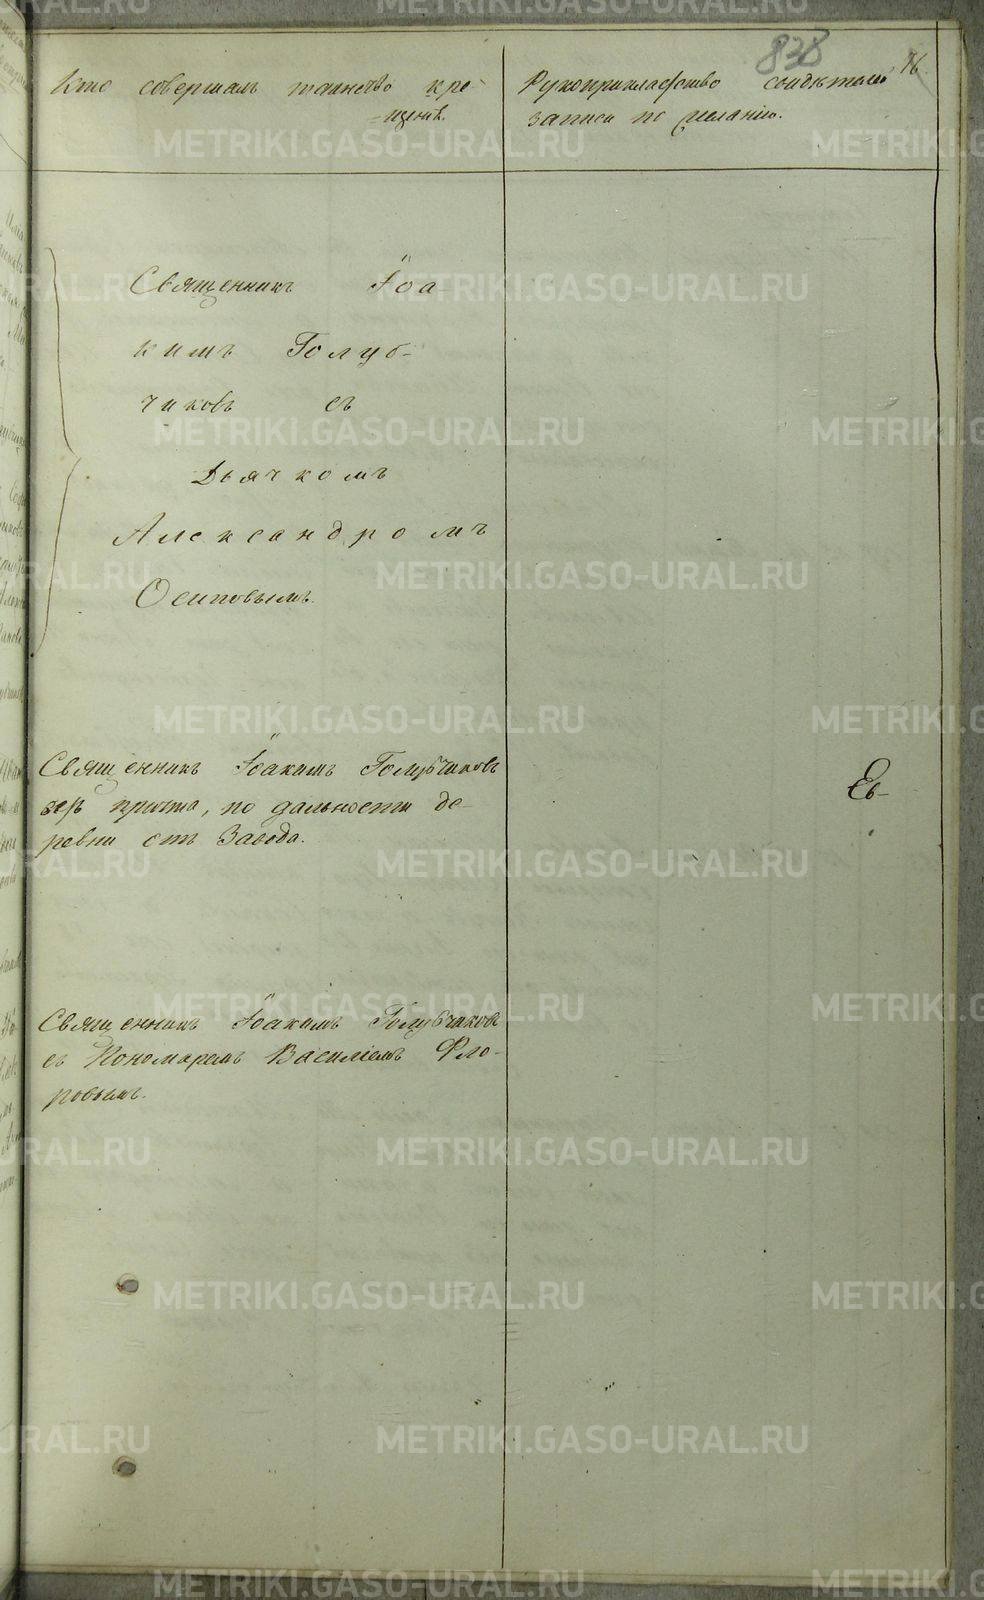 838
76
Кто совершалъ таинство кре-
щенія.
Рукоприкладство свидѣтелей
записи по желанію.
Священникъ Іоа
кимъ Голуб-
чиковъ съ
Дьячкомъ
Александромъ
Осиповымъ.
Священникъ Іоакимъ Голубчиковъ
безъ причта, по дальности де-
ревни отъ Завода.
Священникъ Іоакимъ Голубчиковъ
съ Пономаремъ Василіемъ Фло-
ровымъ.